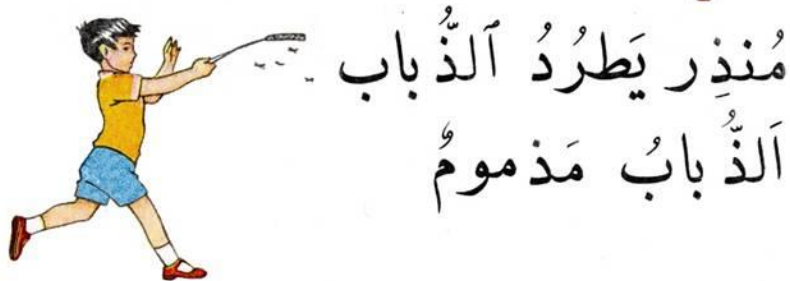 مُنذِر يَطرُدُ ٱلذُّباب
اَلذُّبابُ مَذمومٌ